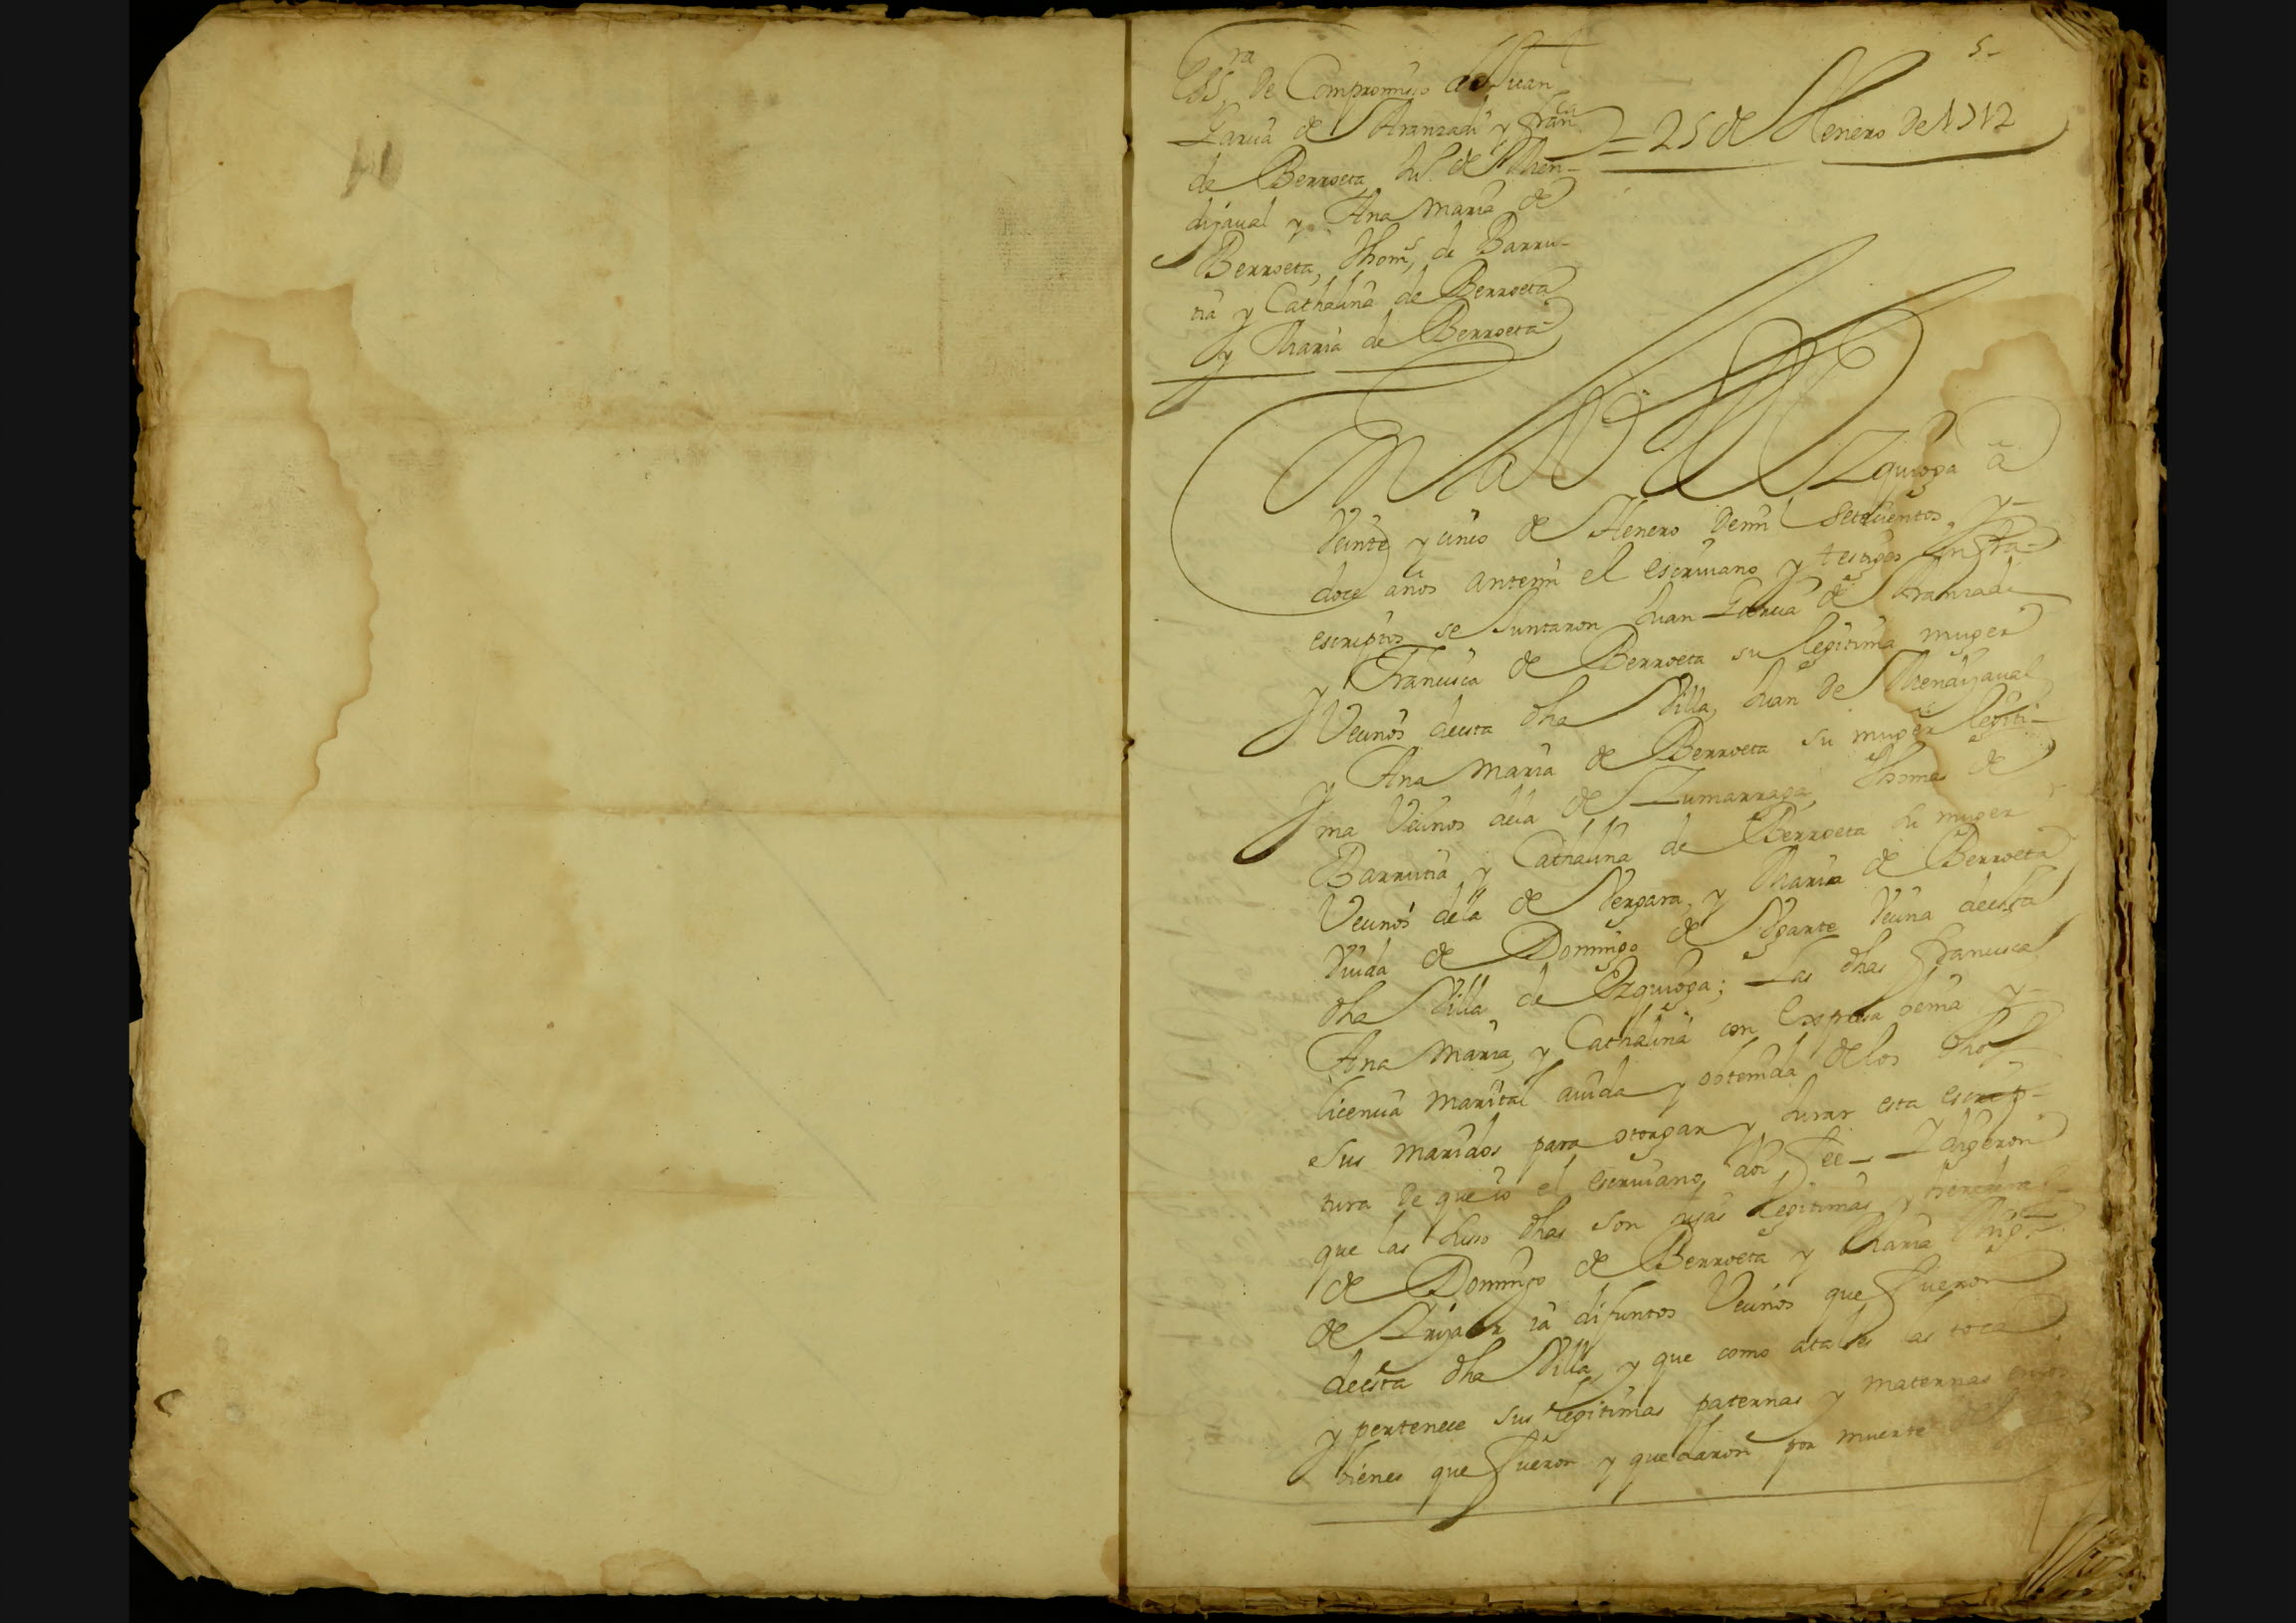 5-
Essra de Compromisso de Juan
Garcia de Aranzadi y Franca
de Berroeta Ju.o de Men-
dijaval y Ana Maria de
Berroeta, Thoms, de Barru-
tia y Cathalina de Berroeta
y Maria de Berroeta=
= 25 de Henero de 1712
En la Villa de Ezquioga â
Veinte y cinco de Henero demil Setecientos, y-
doce años antemi el escriuano y testigos infra-
escriptos se Juntaron Juan Garcia de Aranzadi
y Francisca de Berroeta su legitima muger
Vecinos deesta dha Villa, Juan de Mendijaval
y Ana Maria de Berroeta su muger legiti-
ma Vecinos dela de Zumarraga, Thomas de
Barrutia y Cathalina de Berroeta su muger
Vecinos dela de Vergara, y Maria de Berroeta
Viuda de Domingo de Ugarte Vecina deesta
dha Villa de Ezquioga; Las dhas Francisca
Ana Maria, y Cathalina con Expresa venia y-
licencia Marital auida y obtenida delos dhos
sus maridos para otorgar y Jurar esta escrip-
tura de que io el escriuano doi fee- I digeron
que las suso dhas son hijas legitimas y herederas
de Domingo de Berroeta y Maria Migl
de ia difuntos Vecinos que fueron
deesta dha Villa, y que como atales las toca
y pertenece sus legitimas paternas y maternas
bienes que fueron y quedaron por muerte